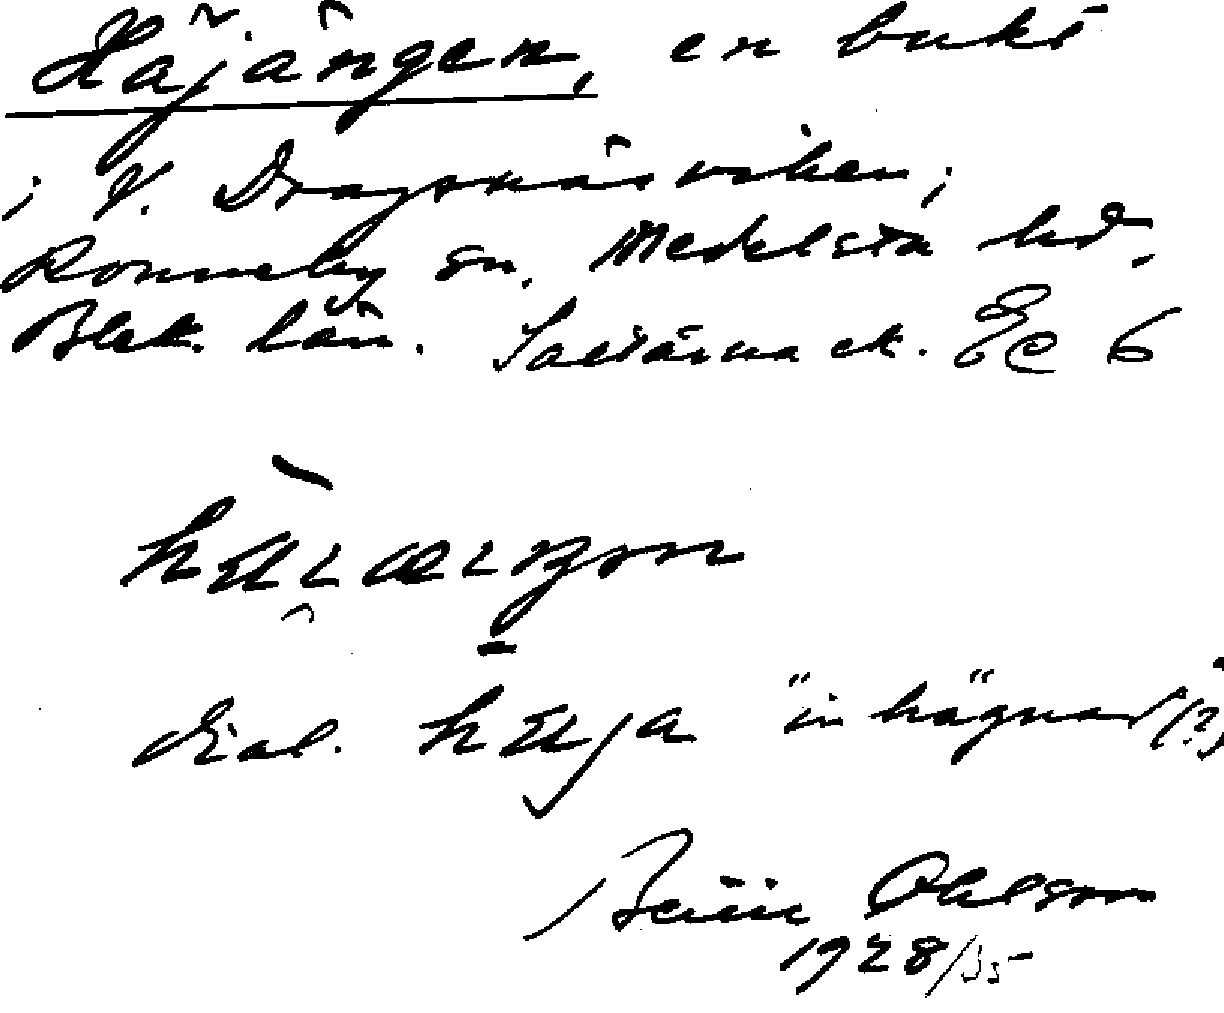 Häjängen, en bukt
i V. Dragsnäsviken,
Ronneby sn. Medelsta hd.
Blek. län. Saltärna ek. Ec 6
dial. hæja "inhägnad" (?)
Bengt Ohlsson
1928/35